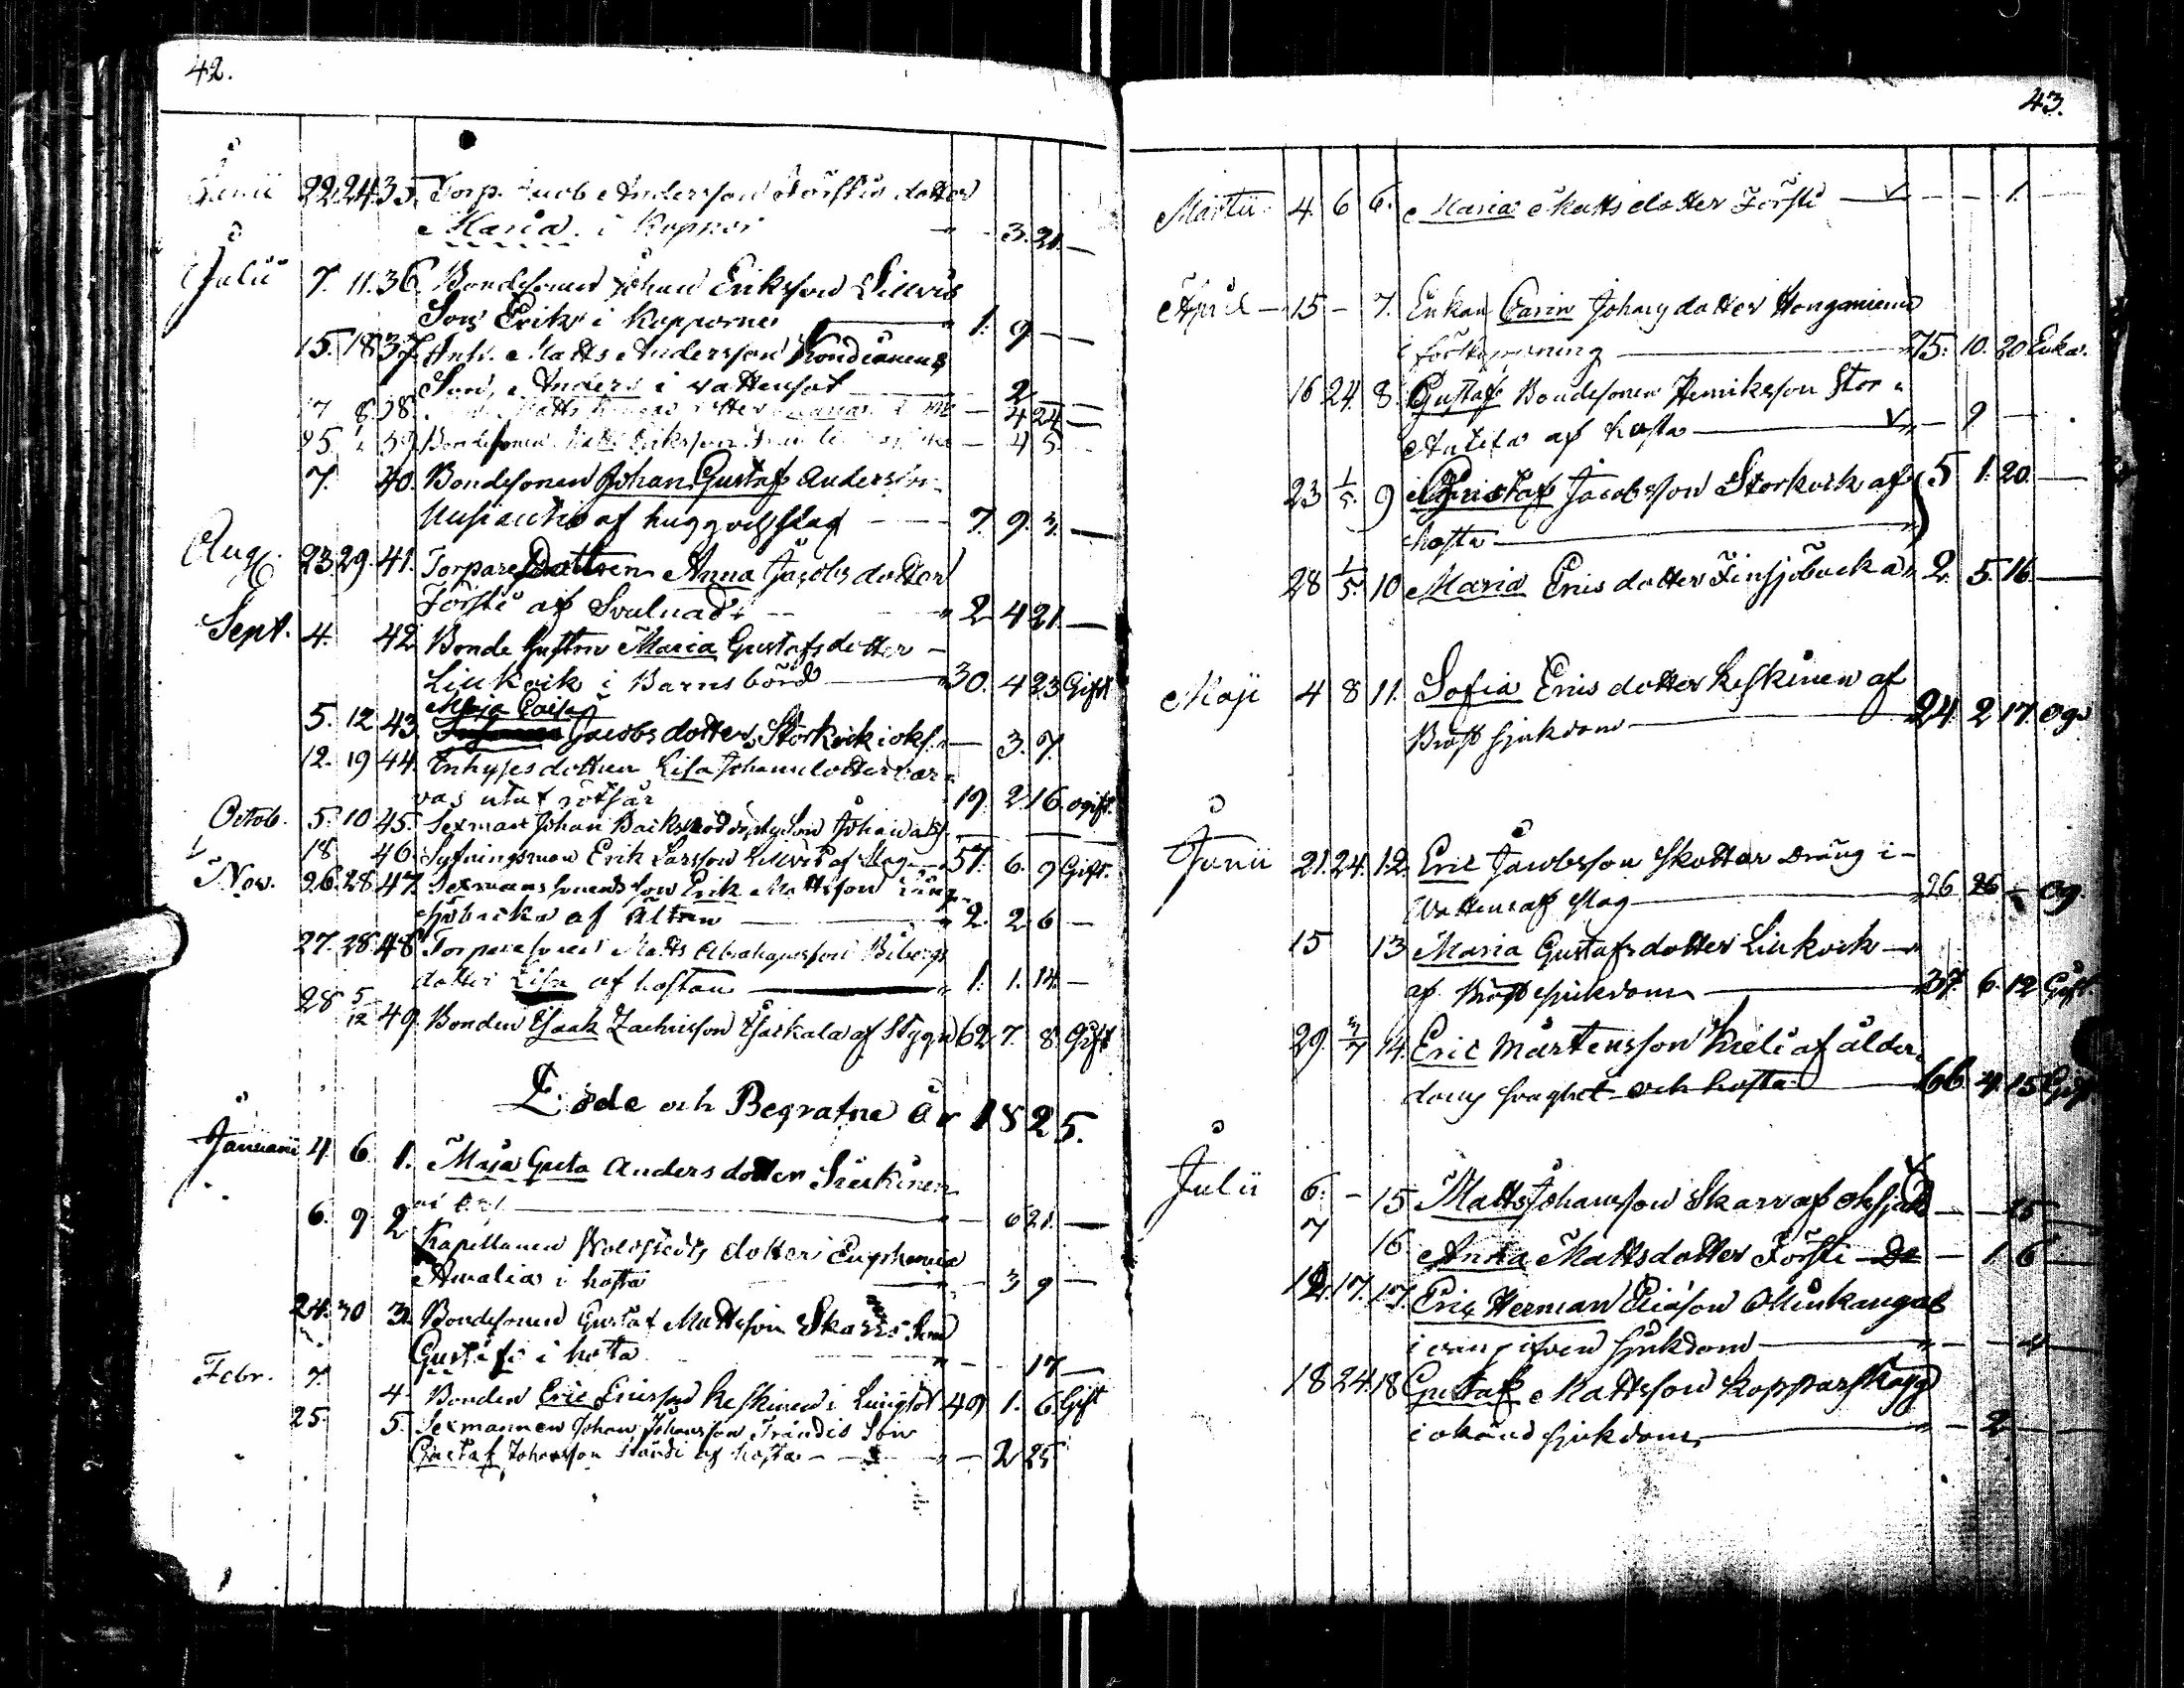 42.
Junii 22. 24. 35. Torp. Jacob Andersson Förstis dotter
Maria i Koppor " - 3. 21. —
Julii 7. 11. 36. Bondesonen Johan Eriksson Sillvis
Son Erik i Kopporne " 1. 9 —
15. 18 37. Inh. Matts Andersson
Son, Anders i vattusot — 2 —
7 8 38. Matts dotter — 4 24 —
25 39. Bondesonen Matts Eriksson — 4 5
7. 40. Bondesonen Johan Gustaf Anders son
af hugg och slag - - - 7. 9. 3. —
Aug. 23. 29. 41. Torpare Dottren Anna Jacobs dotter
Försti af Svulnad " 2 4 21. —
Sept. 4. 42. Bonde Hustrun Maria Gustafsdotter —
Liukoik i Barnsbörd — " 30. 4 23 Gift
Maja Caisa
5. 12 43. Jacobs dotter Storkoik i oks. " — 3. 7.
12. 19 44. Inhyses dottren Lisa Johansdotter
vas utaf rötsår 19. 2. 16. ogift.
Octob. 5. 10 45. Sexman Johan Backs Son Johan —
18 46. Sytningsman Erik Larsson af Slag — 57. 6. 9 Gift.
Nov. 26. 28 47. Sexmans sonens son Erik Mattsson
backa af Ältan — " 2. 2. 6 —
27. 28. 48 Torparesonen Matts Abrahamsson
dotter Lisa af hostan — " 1. 1. 14. —
28 5/12 49. Bonden Isaak Zachrisson af Stygn 62. 7. 8. Gift
Döde och Begrafne år 1825.
Januarii 4 6 1. Maja Greta Anders dotter
— " — 6 21. —
6. 9 2. Kapellanen dotter Euphemia
Amalia i hosta — " — 3 9 —
24. 30 3. Bondesonen Gustaf Mattsson Skarrs Son
Gustaf i hosta " - - 17 —
Febr. 7. 4. Bonden Eric Ericsson Keskinen i Lungsot 49 1. 6. Gift
25. 5. Sexmannen Johan Johansson Ståndis Son
Gustaf Johansson Ståndi af hosta - - " — 2 25
43.
Martii 4. 6 6. Maria Mattsdotter Försti — v - - - 1.
April — 15 — 7. Enkan Carin Johansdotter Honganiemi
förstoppning — " 75. 10. 20 Enka.
16 24. 8. Gustaf Bondesonen Henriksson Stor "
Antila af hosta — v " — 9 —
23 1/5. 9 Gustaf Jacobsson Storkoik af 5 1. 20. —
hosta —
28 1/5. 10 Maria Erics dotter Finsjöbacka " 2. 5. 16. —
Maji 4 8 11. Sofia Erics dotter Keskinen af
Bröst sjukdom — 24. 2 17. Og.
Junii 21. 24. 12. Eric Jacobsson Skottar Dräng i —
af slag — 26. 26 — Og.
15 13 Maria Gustafsdotter Liukoik —
af Bröst sjukdom — " 37. 6. 12 Gift.
29. 3/7 14. Eric Mårtensson af ålder,
doms svaghet och hosta — 66. 4. 15 Gift
Julii 6. — 15 Matts Johansson Skarr af oksjuk — — 25
7 16 Anna Mattsdotter Försti — Do — 1. 6
12. 17. 17. Eric Herman Ericsson Munkangas
i sjukdom — " — — 4
18 24. 18 Gustaf Mattsson
i okänd sjukdom, — " — 2 —